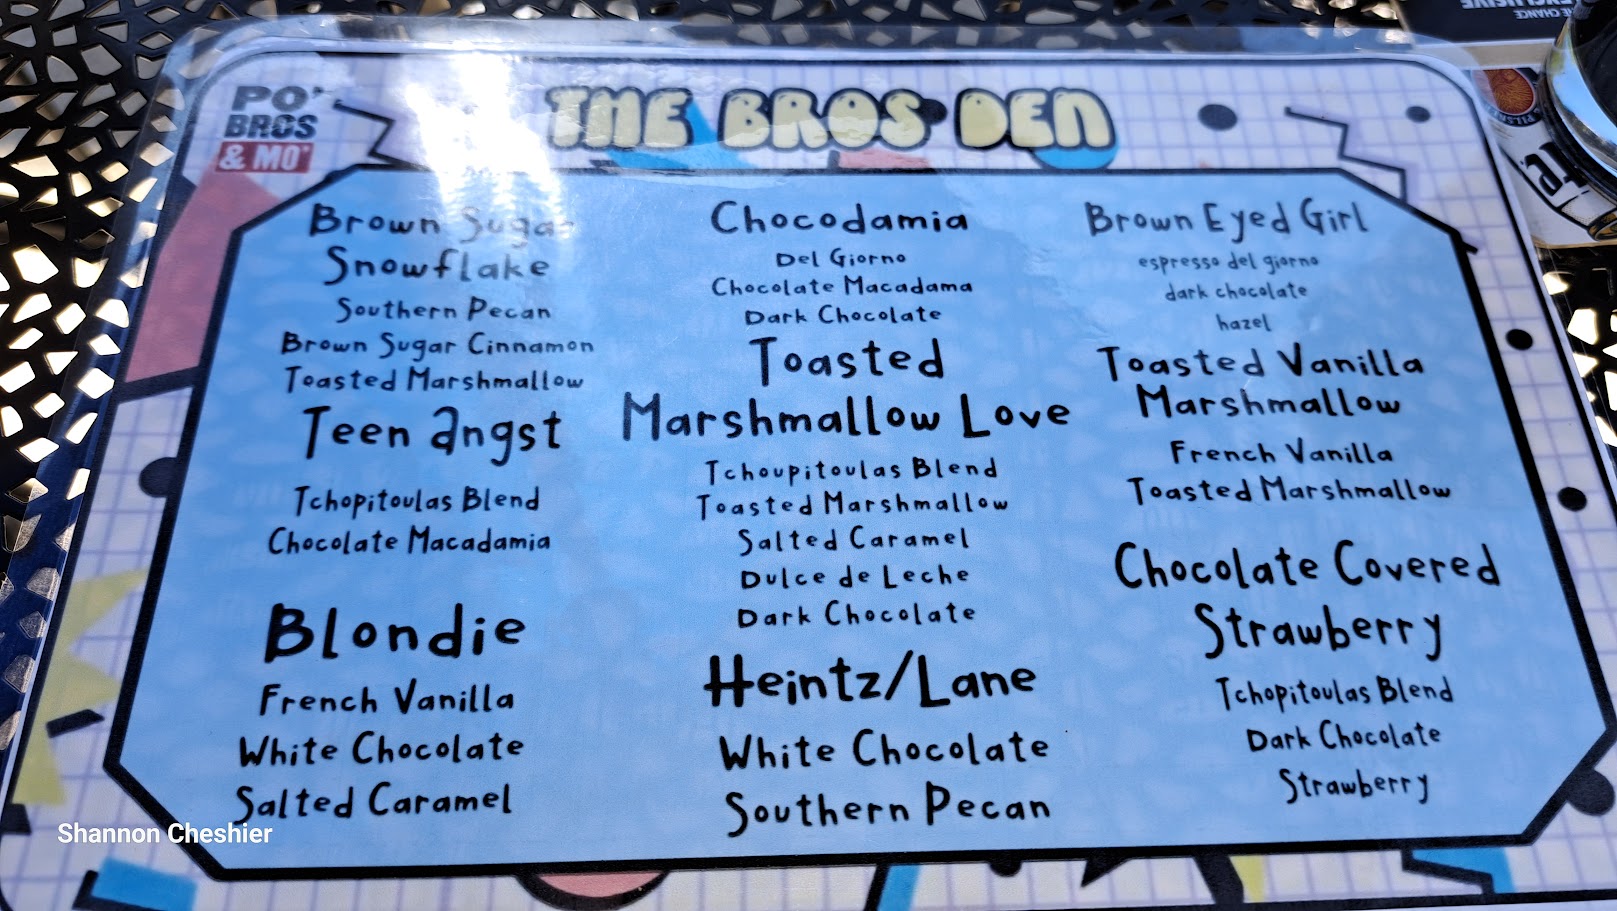 PO'
BROS
& MO'
THE BROS DEN
Brown Sugar
Snowflake
Southern Pecan
Brown Sugar Cinnamon
Toasted Marshmallow
Teen Angst
Tchopitoulas Blend
Chocolate Macadamia
Blondie
French Vanilla
White Chocolate
Salted Caramel
Chocodamia
Del Giorno
Chocolate Macadama
Dark Chocolate
Toasted
Marshmallow Love
Tchoupitoulas Blend
Toasted Marshmallow
Salted Caramel
Dulce de Leche
Dark Chocolate
Heintz/Lane
White Chocolate
Southern Pecan
Brown Eyed Girl
espresso del giorno
dark chocolate
hazel
Toasted Vanilla
Marshmallow
French Vanilla
Toasted Marshmallow
Chocolate Covered
Strawberry
Tchopitoulas Blend
Dark Chocolate
Strawberry
PILSNER
Shannon Cheshier